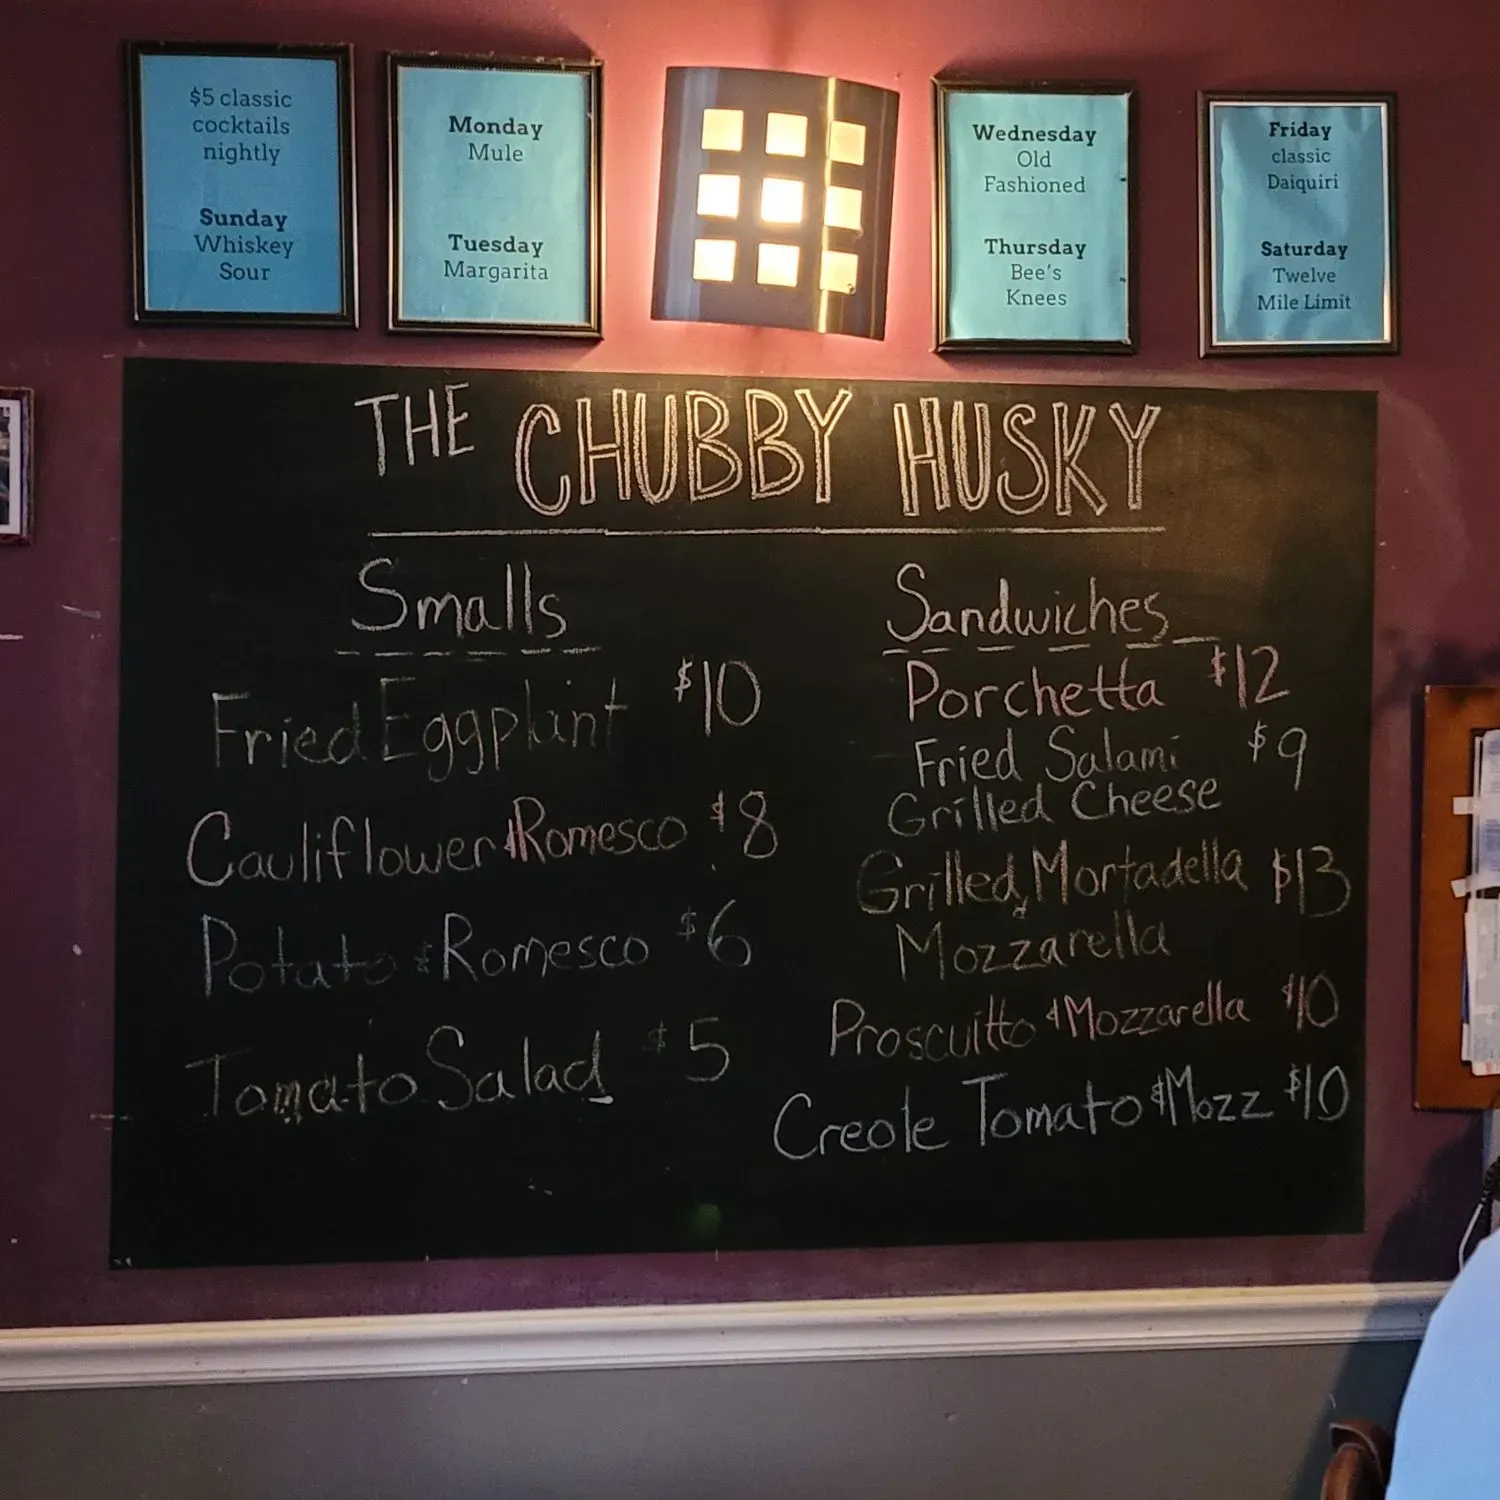 $5 classic
cocktails
nightly
Sunday
Whiskey
Sour
Monday
Mule
Tuesday
Margarita
Wednesday
Old
Fashioned
Thursday
Bee's
Knees
Friday
classic
Daiquiri
Saturday
Twelve
Mile Limit
THE CHUBBY HUSKY
Smalls
Fried Eggplant $10
Cauliflower & Romesco $8
Potato & Romesco $6
Tomato Salad $5
Sandwiches
Porchetta $12
Fried Salami $9
Grilled Cheese
Grilled Mortadella $13
& Mozzarella
Proscuitto & Mozzarella $10
Creole Tomato & Mozz $10